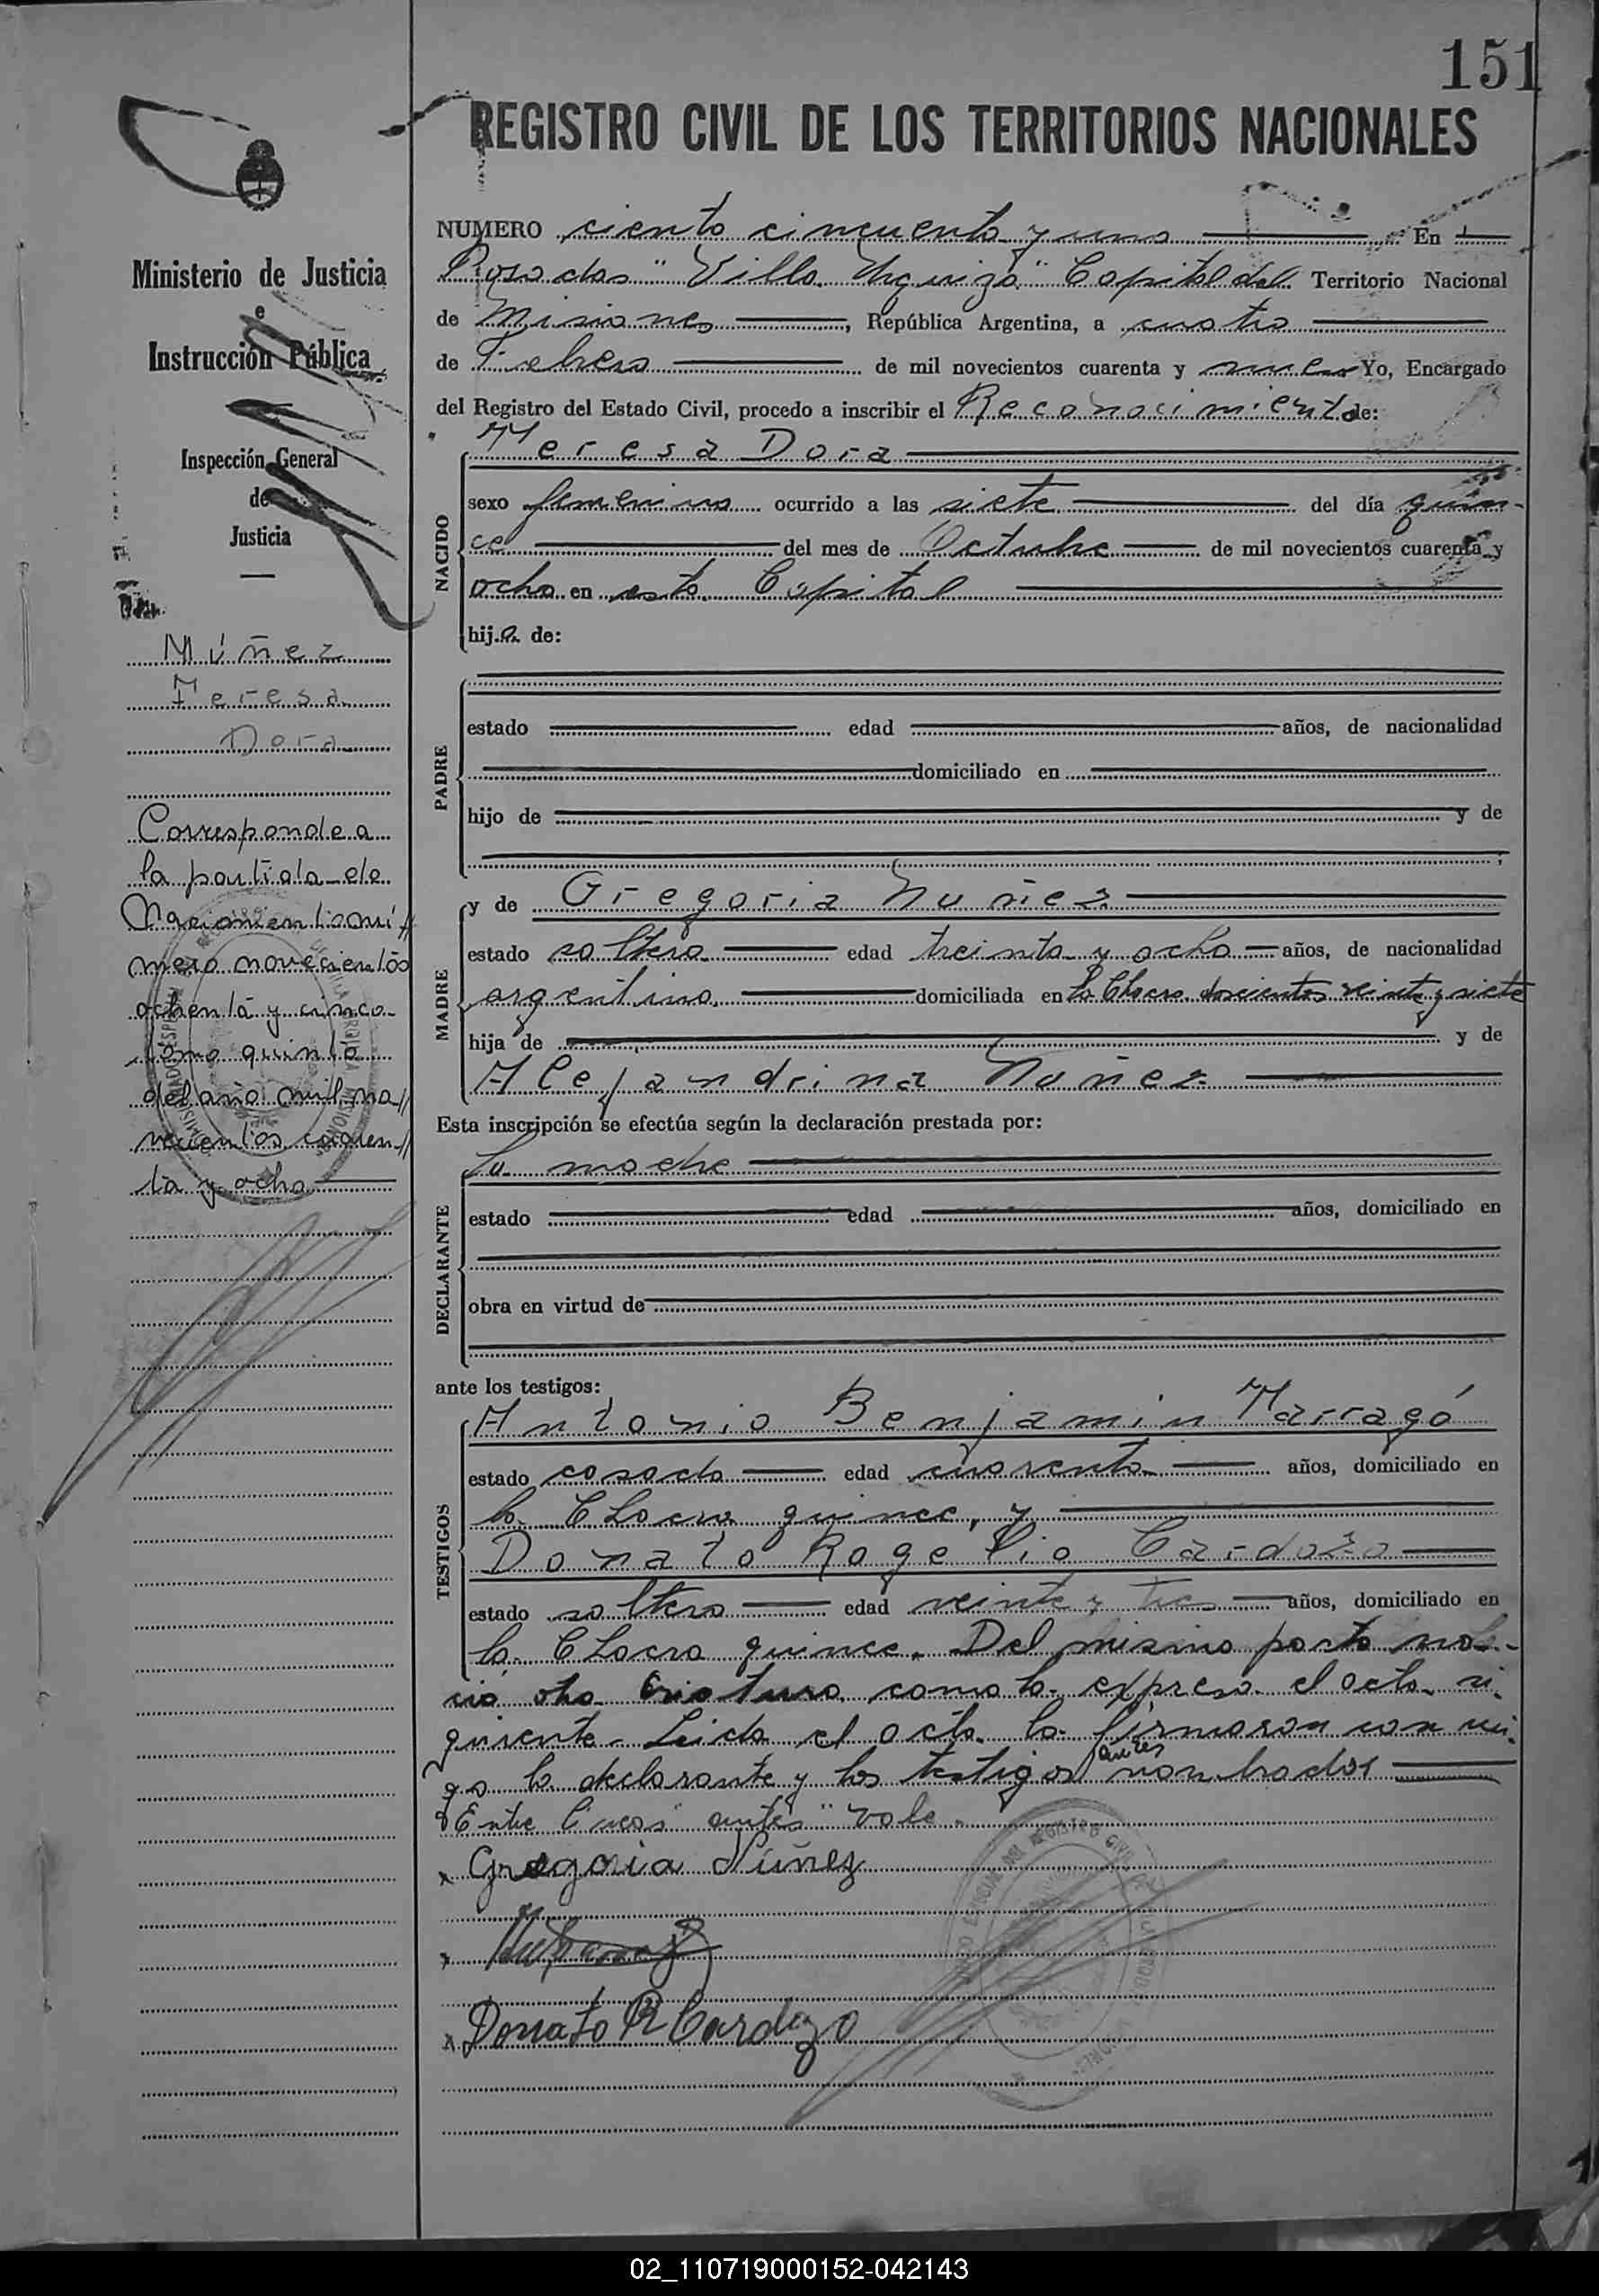 151
REGISTRO CIVIL DE LOS TERRITORIOS NACIONALES
Ministerio de Justicia
e
Instrucción Pública
Inspección General
de
Justicia
Núñez
Teresa
Dora
Corresponde a
la partida de
Nacimiento nú//
mero novecientos
ochenta y cinco
tomo quinto
del año mil no//
vecientos cuaren//
ta y ocho
NUMERO ciento cincuenta y uno En
Posadas "Villa Urquiza" Capital del Territorio Nacional
de Misiones, República Argentina, a cuatro
de Febrero de mil novecientos cuarenta y nueve Yo, Encargado
del Registro del Estado Civil, procedo a inscribir el Reconocimiento de:
NACIDO
Teresa Dora
sexo femenino ocurrido a las siete del día quin-
ce del mes de Octubre de mil novecientos cuarenta y
ocho en esta Capital
hija de:
PADRE
estado edad años, de nacionalidad
domiciliado en
hijo de y de
;
MADRE
y de Gregoria Nuñez
estado soltera edad treinta y ocho años, de nacionalidad
argentina domiciliada en la Chacra doscientos veinte y siete
hija de y de
Alejandrina Nuñez
Esta inscripción se efectúa según la declaración prestada por:
DECLARANTE
La madre
estado edad años, domiciliado en
obra en virtud de
ante los testigos:
TESTIGOS
Antonio Benjamin Tarragó
estado casado edad cuarenta años, domiciliado en
la Chacra quince, y
Donato Rogelio Cardozo
estado soltero edad veinte y tres años, domiciliado en
la Chacra quince. Del mismo parto na-
ció otra criatura como lo expresa el acta si-
guiente. Leida el acta la firmaron con mi-
go la declarante y los testigos antes nombrados
Entre lineas "antes" vale.
x Gregoria Núñez
x
x Donato R Cardozo
02_110719000152-042143